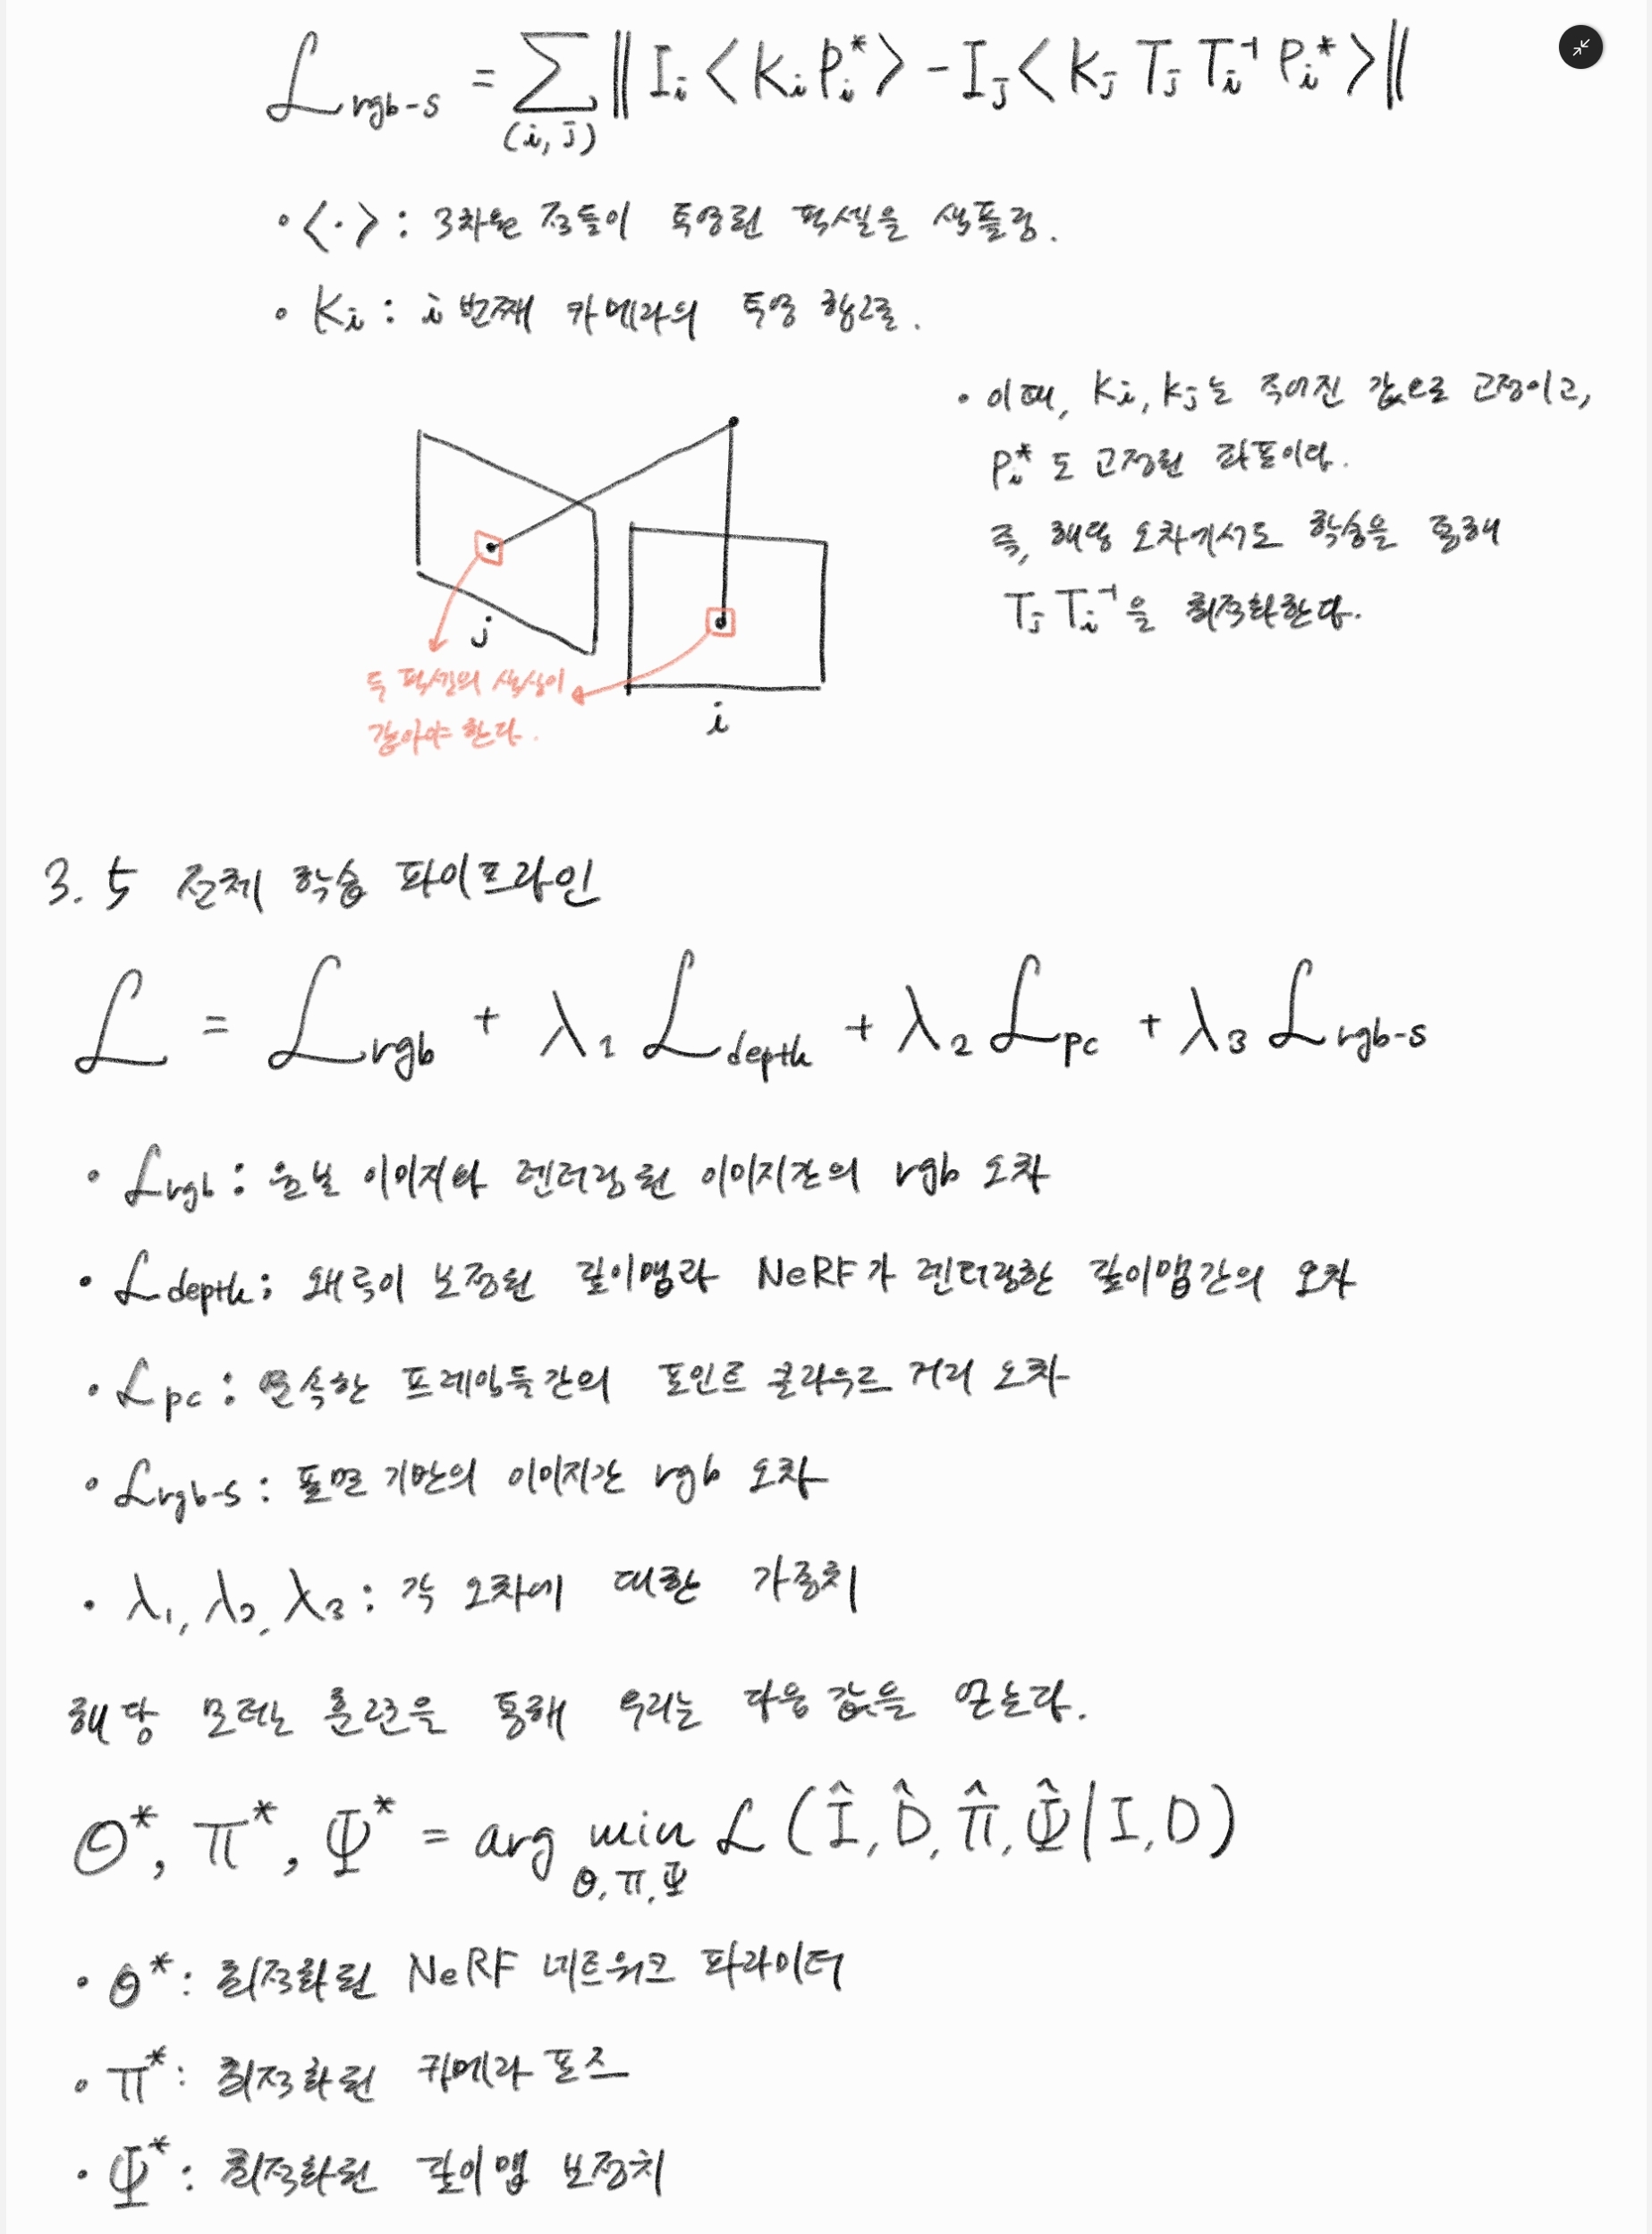 ℒ_rgb-s = Σ_(i,j) ‖ I_i⟨K_i P_i^*⟩ - I_j⟨K_j T_j T_i^-1 P_i^*⟩ ‖
• ⟨·⟩ : 3차원 점들이 투영된 픽셀을 샘플링.
• K_i : i 번째 카메라의 투영 행렬.
• 이때, K_i, K_j는 주어진 값으로 고정이고,
P_i^*도 고정된 좌표이다.
즉, 해당 오차에서도 학습을 통해
T_j T_i^-1을 최적화한다.
j
i
두 픽셀의 색상이
같아야 한다.
3.5 전체 학습 파이프라인
ℒ = ℒ_rgb + λ_1 ℒ_depth + λ_2 ℒ_pc + λ_3 ℒ_rgb-s
• ℒ_rgb : 원본 이미지와 렌더링된 이미지간의 rgb 오차
• ℒ_depth : 왜곡이 보정된 깊이맵과 NeRF가 렌더링한 깊이맵간의 오차
• ℒ_pc : 연속한 프레임들간의 포인트 클라우드 거리 오차
• ℒ_rgb-s : 표면 기반의 이미지간 rgb 오차
• λ_1, λ_2, λ_3 : 각 오차에 대한 가중치
해당 모델는 훈련을 통해 우리는 다음 값을 얻는다.
Θ^*, Π^*, Ψ^* = arg min_Θ,Π,Ψ ℒ(Î, D̂, Π̂, Ψ̂ | I, D)
• Θ^* : 최적화된 NeRF 네트워크 파라미터
• Π^* : 최적화된 카메라 포즈
• Ψ^* : 최적화된 깊이맵 보정치